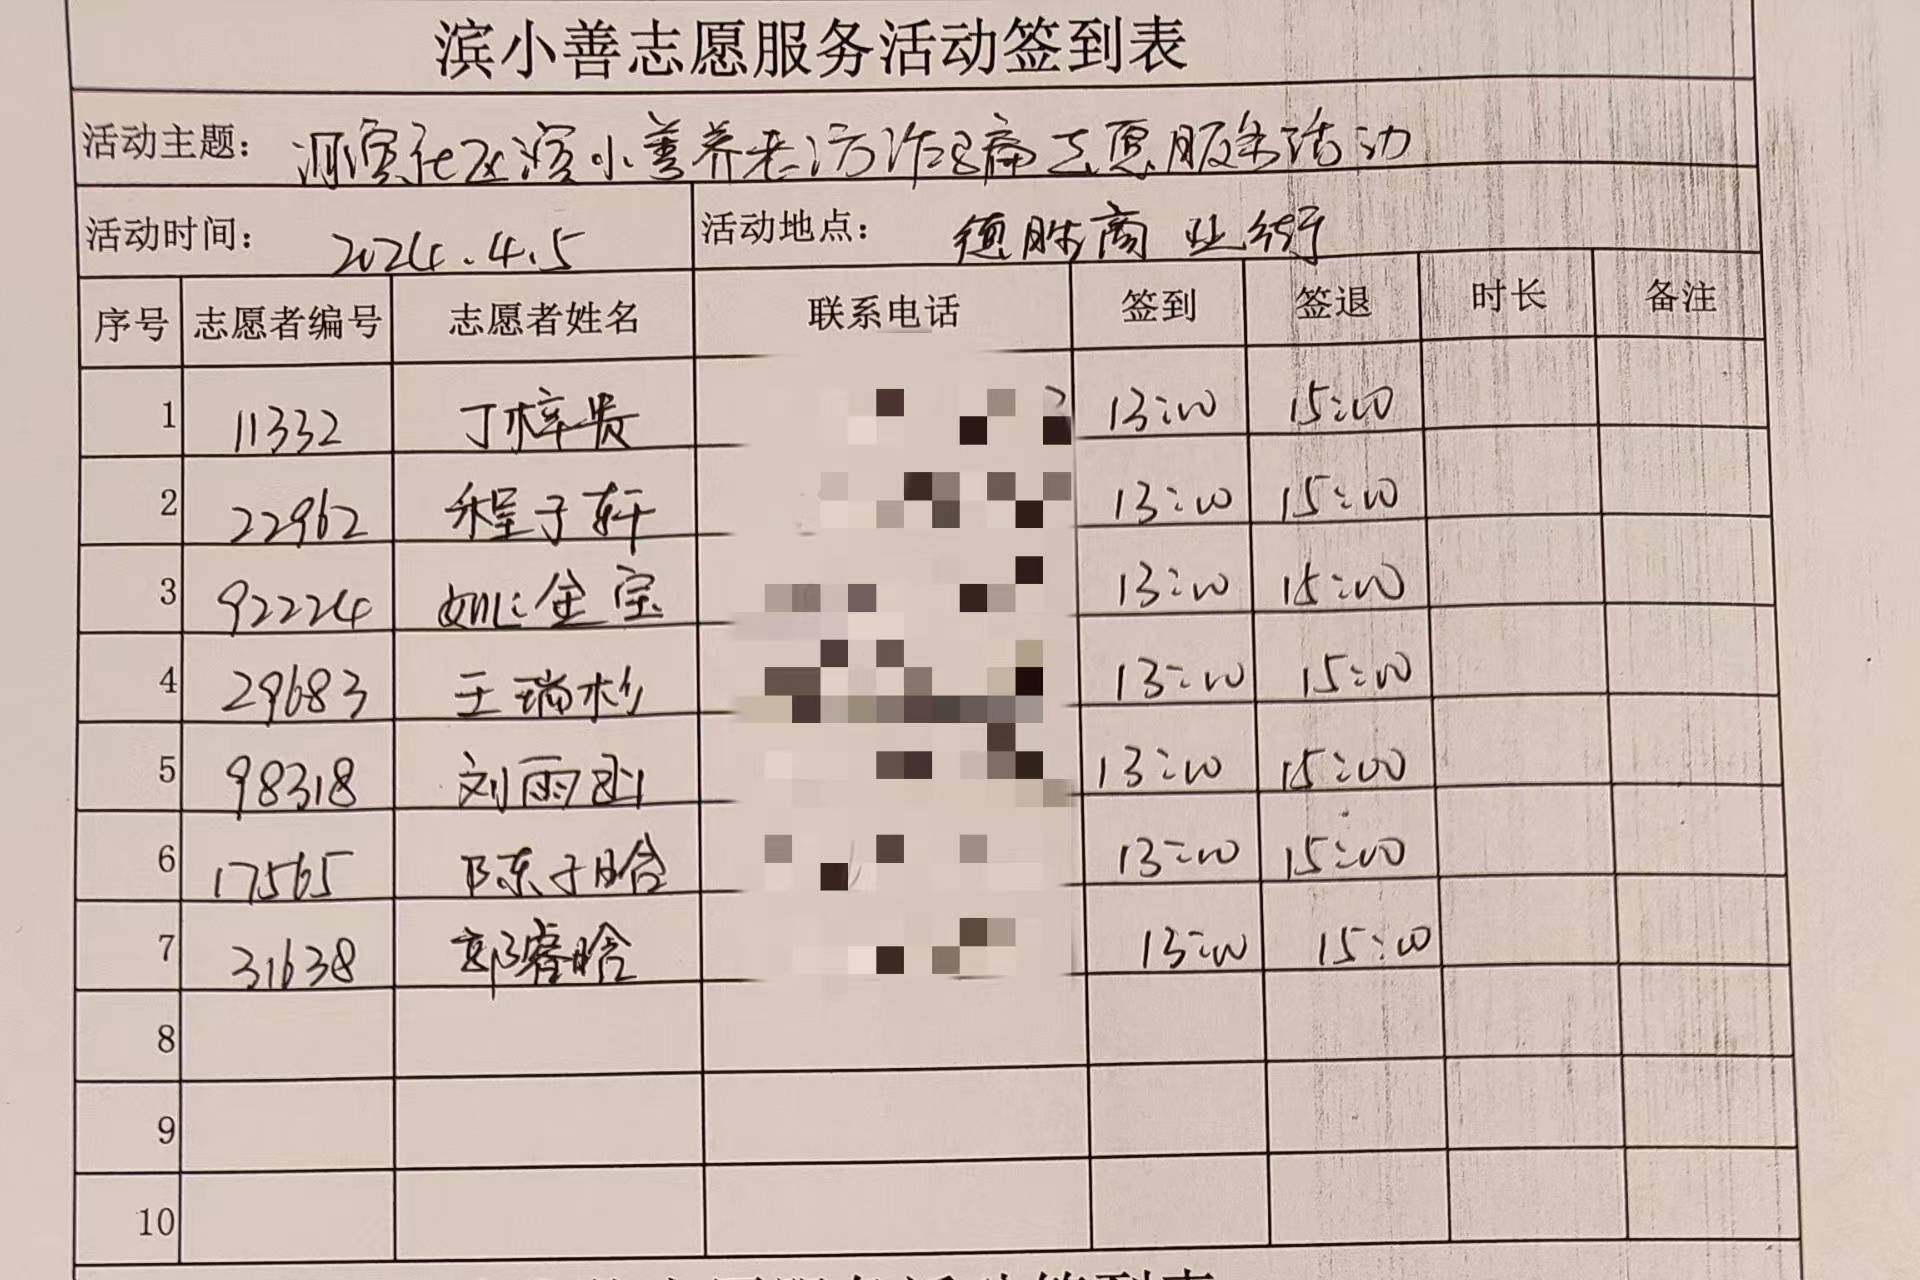 滨小善志愿服务活动签到表
活动主题: 河滨社区滨小善养老防诈骗志愿服务活动
活动时间: 2024.4.5 活动地点: 德胜商业街
序号 志愿者编号 志愿者姓名 联系电话 签到 签退 时长 备注
1 11332 丁梓贵 13:00 15:00
2 22962 程子轩 13:00 15:00
3 92224 姚金宝 13:00 15:00
4 29683 王瑞杉 13:00 15:00
5 98318 刘雨 13:00 15:00
6 17565 陈子晗 13:00 15:00
7 31638 郭睿晗 13:00 15:00
8
9
10